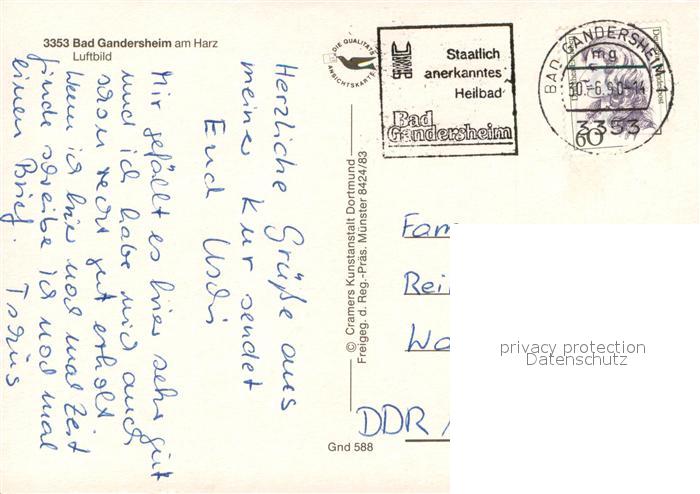 3353 Bad Gandersheim am Harz
Luftbild
DIE QUALITÄTS
ANSICHTSKARTE
Staatlich
anerkanntes
Heilbad
Bad
Gandersheim
BAD GANDERSHEIM 1
mg
30.-6.90-14
3353
Deutsche Bundespost
60
Herzliche Grüße aus
meiner Kur sendet
Euch Uschi
Mir gefällt es hier sehr gut
und ich habe mich auch
schon recht gut erholt
Wenn ich hier noch mal Zeit
finde schreibe ich noch mal
einen Brief. Tschüs
© Cramers Kunstanstalt Dortmund
Freigeg. d. Reg.-Präs. Münster 8424/83
Fam
Rei
Wa
DDR /
Gnd 588
privacy protection
Datenschutz